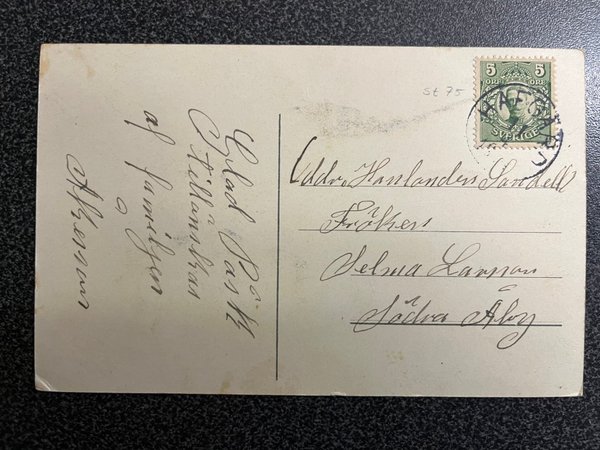 Glad Påsk
Tillönskas
af familjen
Åkesson
st 75
5 5
ÖRE ÖRE
SVERIGE
Addr. Handlanden Sandell
Fröken
Selma Larsson
Södra Åby